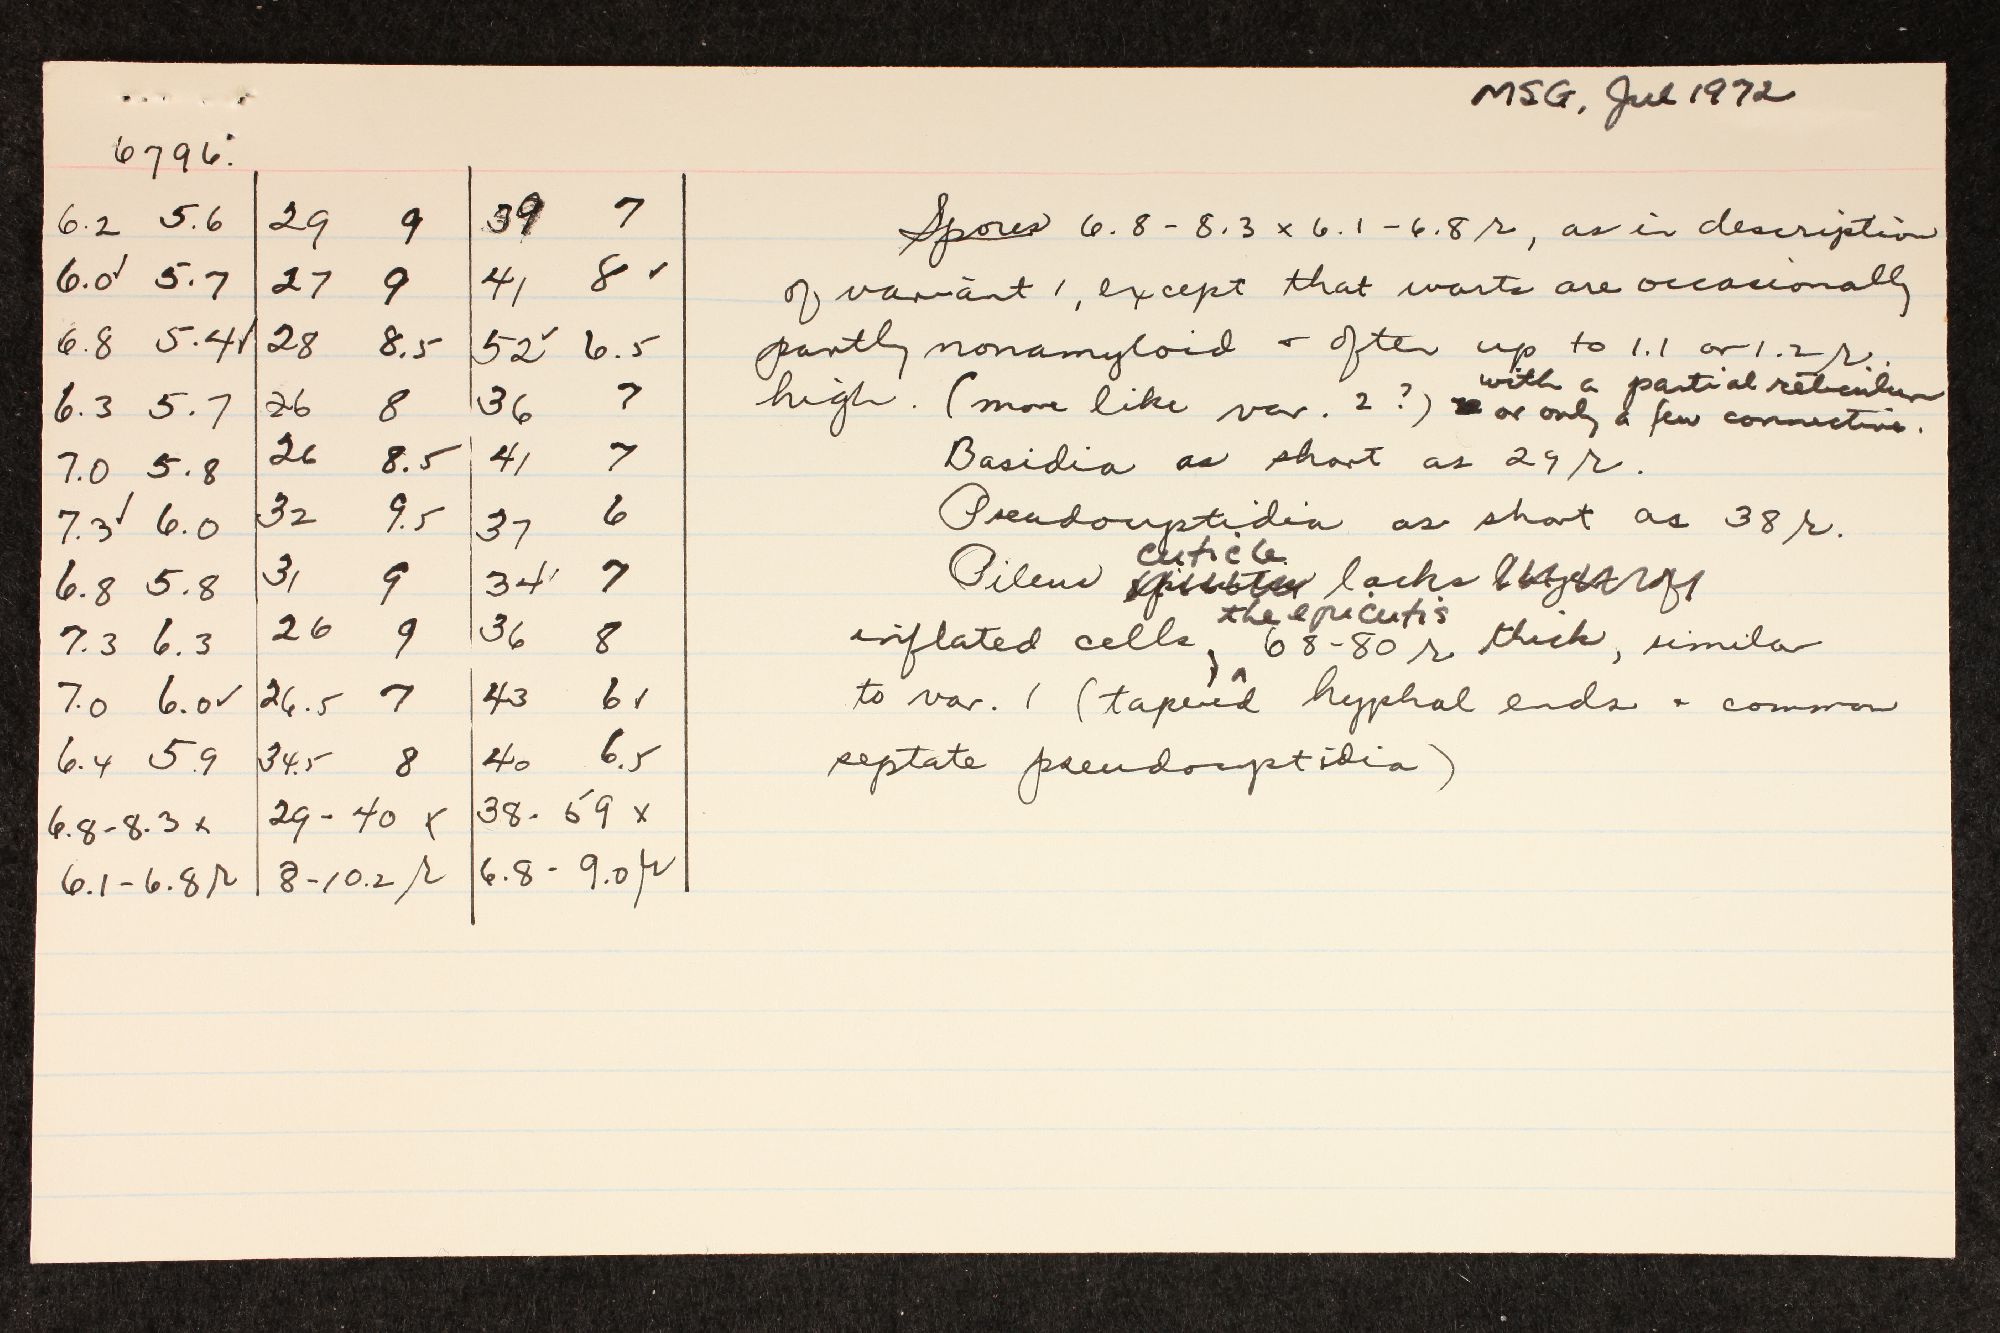 MSG, Jul 1972
6796:
6.2 5.6 29 9 39 7
6.0✓ 5.7 27 9 41 8✓
6.8 5.4✓ 28 8.5 52✓ 6.5
6.3 5.7 26 8 36 7
7.0 5.8 26 8.5 41 7
7.3✓ 6.0 32 9.5 37 6
6.8 5.8 31 9 34 7
7.3 6.3 26 9 36 8
7.0 6.0✓ 26.5 7 43 6✓
6.4 5.9 34.5 8 40 6.5
6.8-8.3 x 29-40 x 38-59 x
6.1-6.8 μ 8-10.2 μ 6.8-9.0 μ
Spores 6.8-8.3 x 6.1-6.8 μ, as in description
of variant 1, except that warts are occasionally
partly nonamyloid + often up to 1.1 or 1.2 μ
high. (more like var. 2?) with a partial reticulum
or only a few connective.
Basidia as short as 29 μ.
Pseudocystidia as short as 38 μ.
cuticle
Pileus lacks
the epicutis
inflated cells, 68-80 μ thick, similar
to var. 1 (tapered hyphal ends + common
septate pseudocystidia)